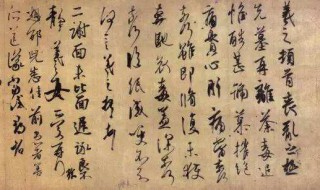 羲之頓首喪亂之極
先墓再離荼毒追
惟酷甚號慕摧絕
痛貫心肝痛當奈何
奈何雖即脩復未獲
奔馳哀毒益深奈何
奈何臨紙感哽不知
何言羲之頓首頓首
二謝面未比面遲詠良
不靜羲之女愛再拜
想邵兒悉佳前患者善